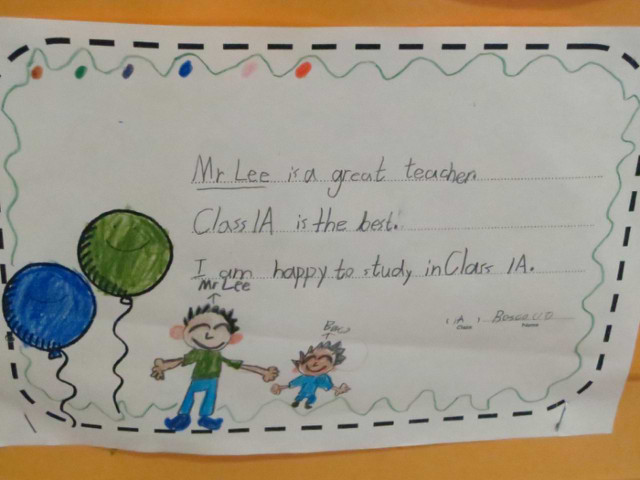 Mr Lee is a great teacher.
Class 1A is the best.
I am happy to study in Class 1A.
Mr Lee
(1A)
Class
Name